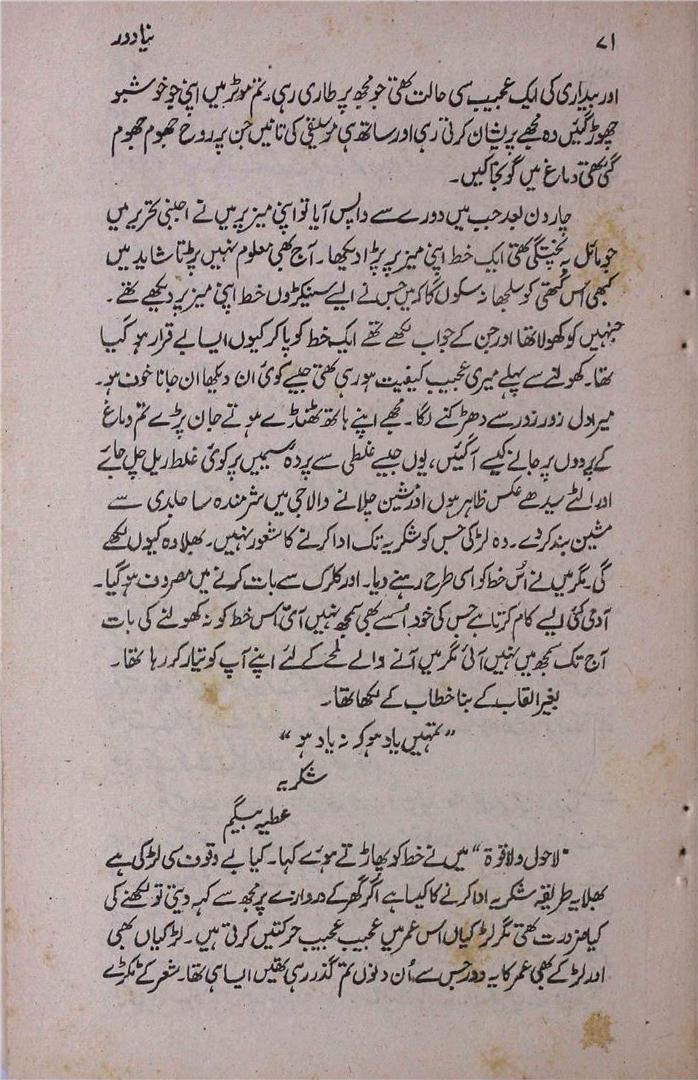 ۷۱ نیا دور
اور بیداری کی ایک عجیب سی حالت تھی جو مجھ پر طاری رہی۔ تم موٹر میں اپنی جو خوشبو
چھوڑ گئیں وہ مجھے پریشان کرتی رہی اور ساتھ ہی موسیقی کی تانیں جن پر روح جھوم جھوم
گئی تھی دماغ میں گونجا کیں۔
چار دن بعد جب میں دورے سے واپس آیا تو اپنی میز پر میں نے اجنبی تحریر میں
جو مائل بہ پختگی تھی ایک خط اپنی میز پر پڑا دیکھا۔ آج بھی معلوم نہیں پڑتا شاید میں
کبھی اس گتھی کو سلجھا نہ سکوں گا کہ میں جس نے ایسے سینکڑوں خط اپنی میز پر دیکھے تھے۔
جنہیں کو کھولا تھا اور جن کے جواب لکھے تھے ایک خط کو پا کر کیوں ایسا بے قرار ہو گیا
تھا۔ کھولنے سے پہلے میری عجیب کیفیت ہو رہی تھی جیسے کوئی ان دیکھا ان جانا خوف ہو۔
میرا دل زور زور سے دھڑکنے لگا۔ مجھے اپنے ہاتھ ٹھنڈے ہوتے جان پڑے تم دماغ
کے پردوں پر جانے کیسے آ گئیں، یوں جیسے غلطی سے پردہ سیمیں پر کوئی غلط ریل چل جائے
اور الٹے سیدھے عکس ظاہر ہوں اور مشین چلانے والا جی میں شرمندہ سا جلدی سے
مشین بند کر دے۔ وہ لڑکی جس کو شکریہ تک ادا کرنے کا شعور نہیں۔ بھلا وہ کیوں لکھے
گی۔ مگر میں نے اُس خط کو اسی طرح رہنے دیا۔ اور کلرک سے بات کرنے میں مصروف ہو گیا۔
آدمی کئی ایسے کام کرتا ہے جس کی خود اُسے بھی سمجھ نہیں آتی اس خط کو نہ کھولنے کی بات
آج تک سمجھ میں نہیں آئی مگر میں آنے والے لمحے کے لئے اپنے آپ کو تیار کر رہا تھا۔
بغیر القاب کے بنا خطاب کے لکھا تھا۔
"تمہیں یاد ہو کہ نہ یاد ہو"
شکریہ
عطیہ بیگم
"لاحول ولا قوۃ" میں نے خط کو پھاڑتے ہوئے کہا۔ کیا بے وقوف سی لڑکی ہے
بھلا یہ طریقہ شکریہ ادا کرنے کا کیسا ہے اگر گھر کے دروازے پر مجھ سے کہہ دیتی تو لکھنے کی
کیا ضرورت تھی مگر لڑکیاں اس عمر میں عجیب عجیب حرکتیں کرتی ہیں۔ لڑکیاں بھی
اور لڑکے بھی عمر کا یہ دور جس سے اُن دنوں تم گذر رہی تھیں ایسا ہی تھا۔ شعر کے ٹکڑے